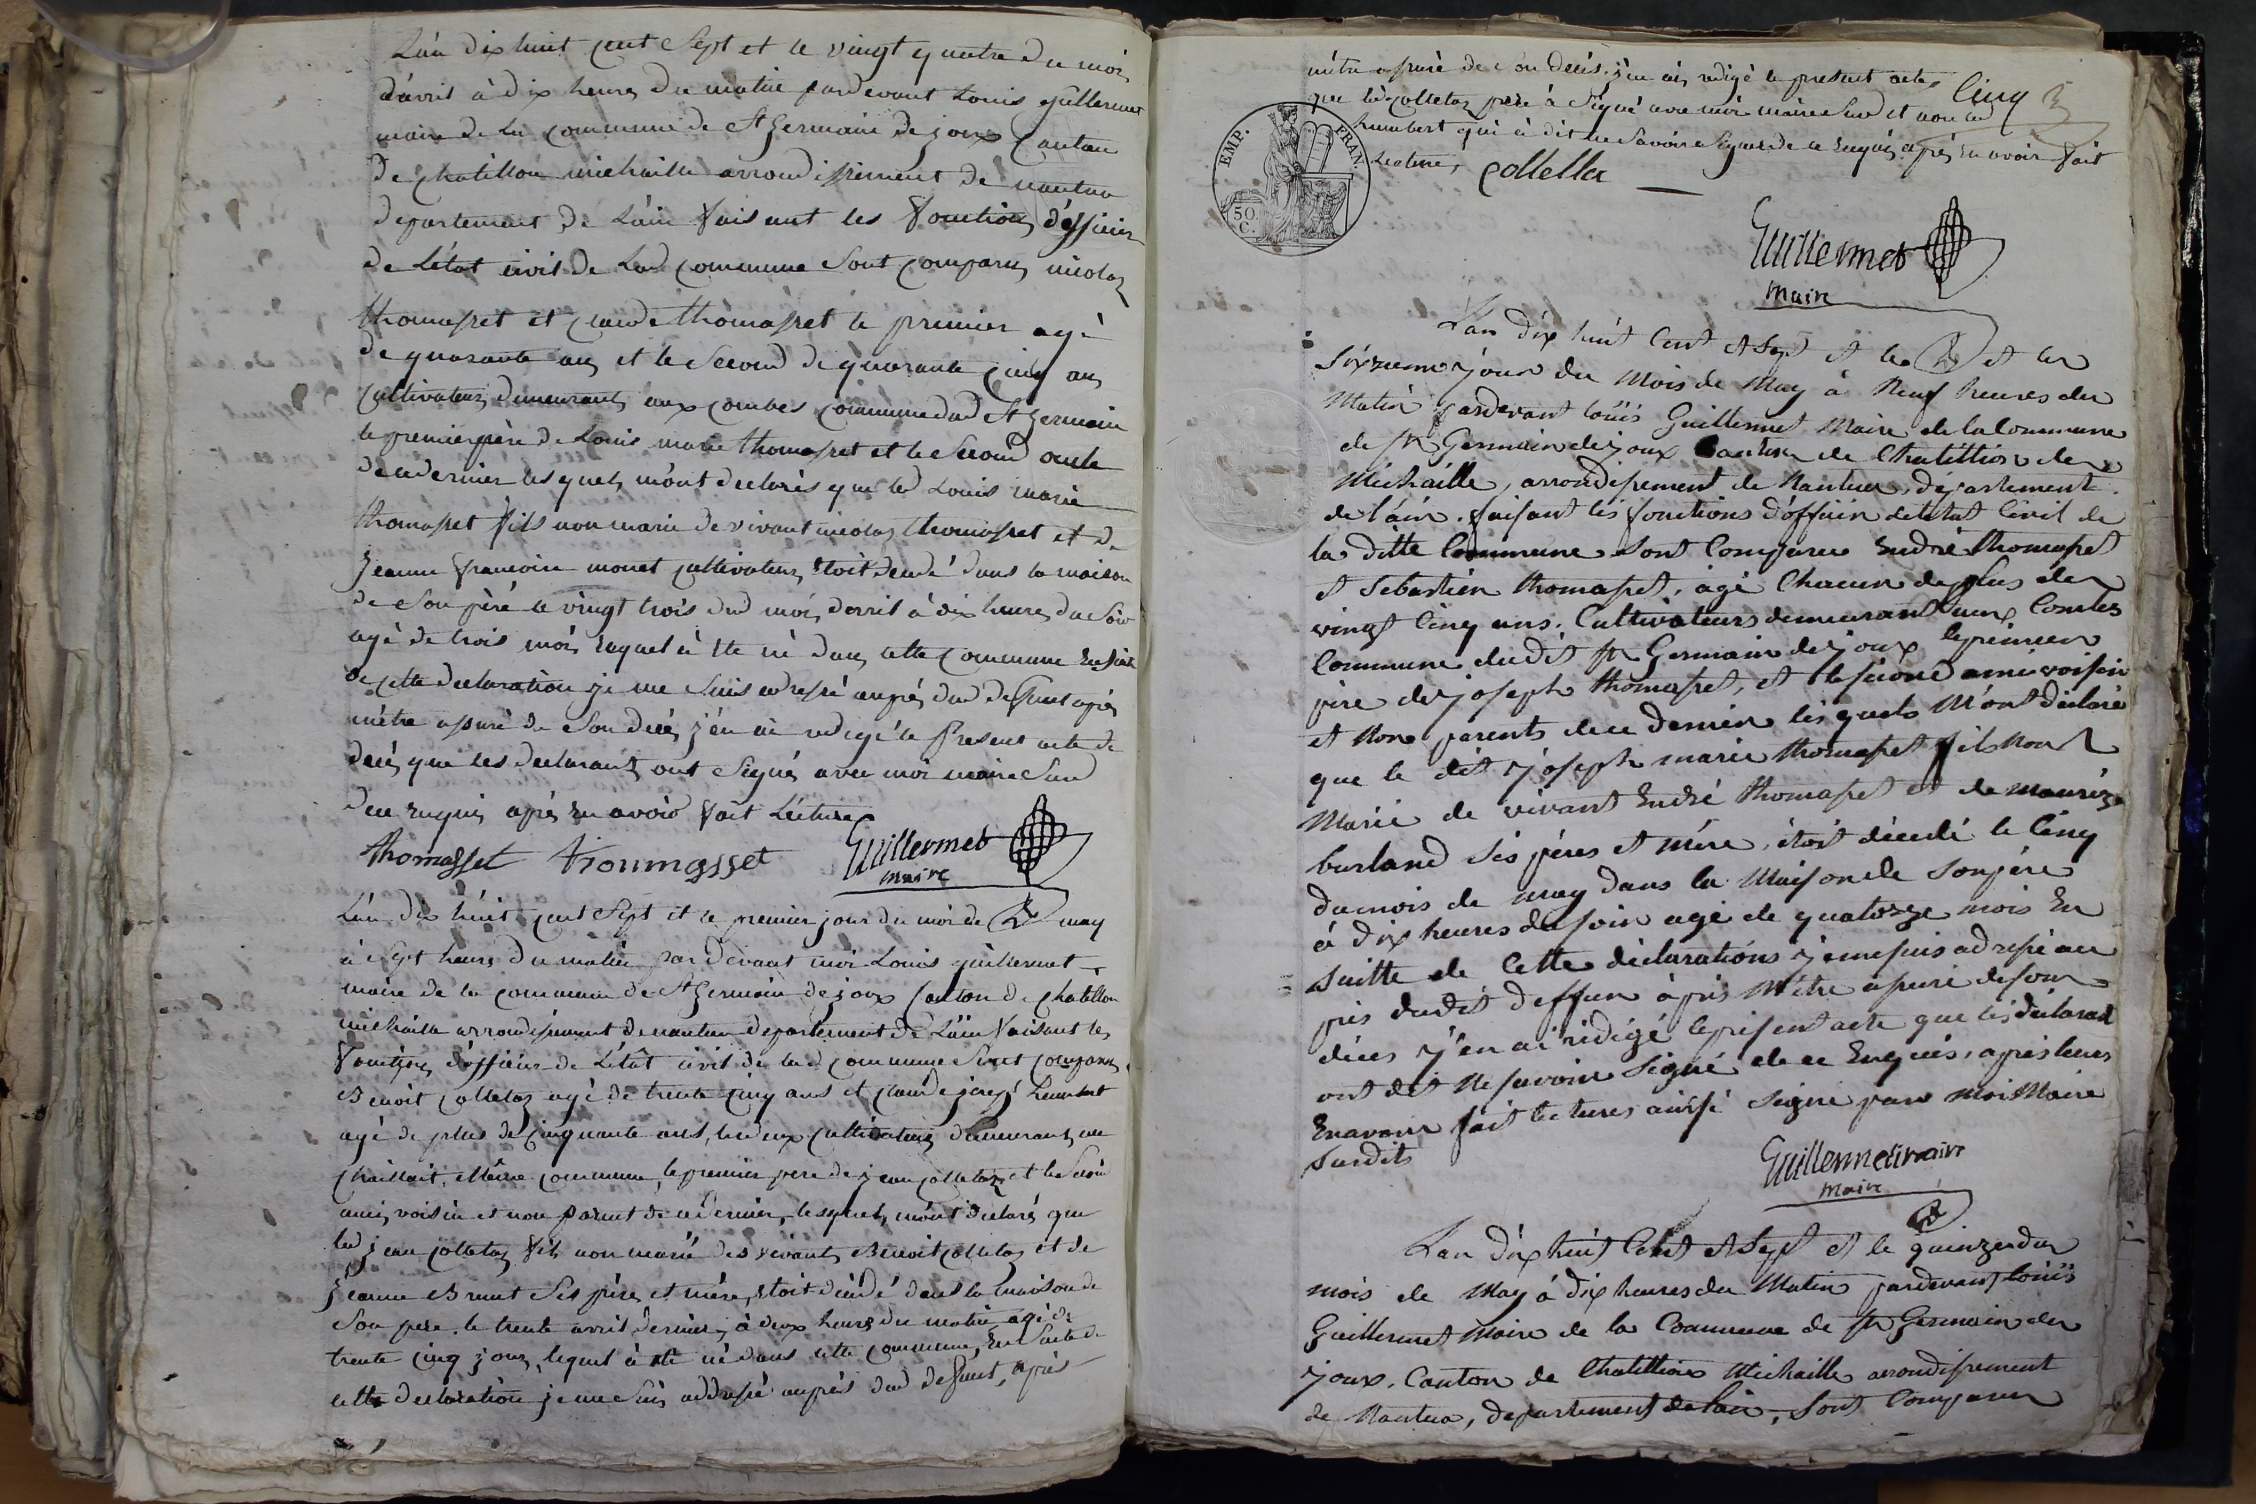 L'an dix huit cent Sept et le vingt quatre du mois
d'avril à dix heures du matin pardevant Louis guillermet
maire de la commune de St germain de joux Canton
de chatillon michaille arrondissement de nantua
departement de L'ain faisant les fonctions d'officier
de L'état civil de Lad commune Sont comparus nicolas
thomasset et claude thomasset le premier agé
de quarante ans et le Second de quarante cinq ans
cultivateurs demeurants aux combes commune dud St germain
le premier père de Louis marie thomasset et le Second oncle
de ce dernier lesquels m'ont declarés que led Louis marie
thomasset fils non marié de vivant nicolas thomasset et de
jeanne francoise monet cultivateurs étoit décédé dans la maison
de Son père le vingt trois dud mois d'avril à dix heures du Soir
agé de trois mois lequel à été né dans cette commune En suite
de cette declaration je me Suis adressé auprès dud deffunt après
m'être assuré de Son décés j'en ai redigé le present acte de
décés que les declarants ont Signés avec moi maire Susd
de ce Enquis après En avoir fait Lecture
thomasset thoumasset Guillermet
maire
L'an dix huit cent Sept et le premier jour du mois de may
à Sept heures du matin par devant moi Louis guillermet
maire de la commune de St germain de joux Canton de chatillon
michaille arrondissement de nantua departement de L'ain faisant les
fonctions d'officier de L'état civil de lad commune Sont comparus
Benoit colletaz agé de trente cinq ans et claude joseph humbert
agé de plus de cinquante ans, les deux cultivateurs demeurants au
, même commune, le premier pere de jean colletaz et le Second
ami, voisin et non parent de ce dernier, lesquels m'ont declarés que
led jean colletaz fils non marié des vivants Benoit colletaz et de
jeanne Brunet Ses père et mère, étoit décédé dans la maison de
Son pere le trente avril dernier, à deux heures du matin agé de
trente cinq jours, lequel à été né dans cette commune, En suite de
cette declaration je me Suis addressé auprès dud deffunt, après
m'être assuré de Son décés. j'en ai redigé le present acte Cinq
que led colletaz père à Signé avec moi maire Susd et non led
humbert qui à dit ne Savoir Signer de ce Enquis après En avoir fait
Lecture, Colletta
EMP. FRAN.
50 C.
Guillermet
maire
L'an dix huit Cent et Sept et le et le
Sixzieme jour du Mois de May à Neuf heures du
Matin pardevant louis Guillermet Maire de la Commune
de St Germain de joux Canton de Chatillion de
Michaille, arrondissement de Nantua, departement
de l'ain. faisant les fonctions d'officier de l'etat Civil de
la ditte Commune Sont Comparu Endré thomasset
et Sebastien thomasset, agé Chacun de plus de
vingt Cinq ans. Cultivateurs demeurant aux Combes
Commune dudit St Germain de joux le premier
père de joseph thomasset, et le second ami voisin
et Non parents de ce dernier lesquels M'ont déclaré
que le dit joseph marie thomasset fils Non
Marié de vivant Endré thomasset et de
burland Ses pères et mère, étoit décedé le Cinq
du mois de may dans la Maison de Son père
à dix heures du soir agé de quatorze mois En
Suitte de Cette déclarations je me suis adressé au
près dudit deffun après M'être assuré de son
déces j'en ai rédigé le present acte que les déclarant
ont dit Ne savoir Signé de ce Enquis, après leurs
En avoir fait lectures ainsi Signé par Moi Maire
Susdits
Guillermet maire
maire
L'an dix huit Cent et Sept et le quinze du
mois de May à dix heures du Matin pardevant louis
Guillermet Maire de la Commune de St Germain de
joux. Canton de Chatillion Michaille arrondissement
de Nantua, departement de l'ain, Sont Comparu